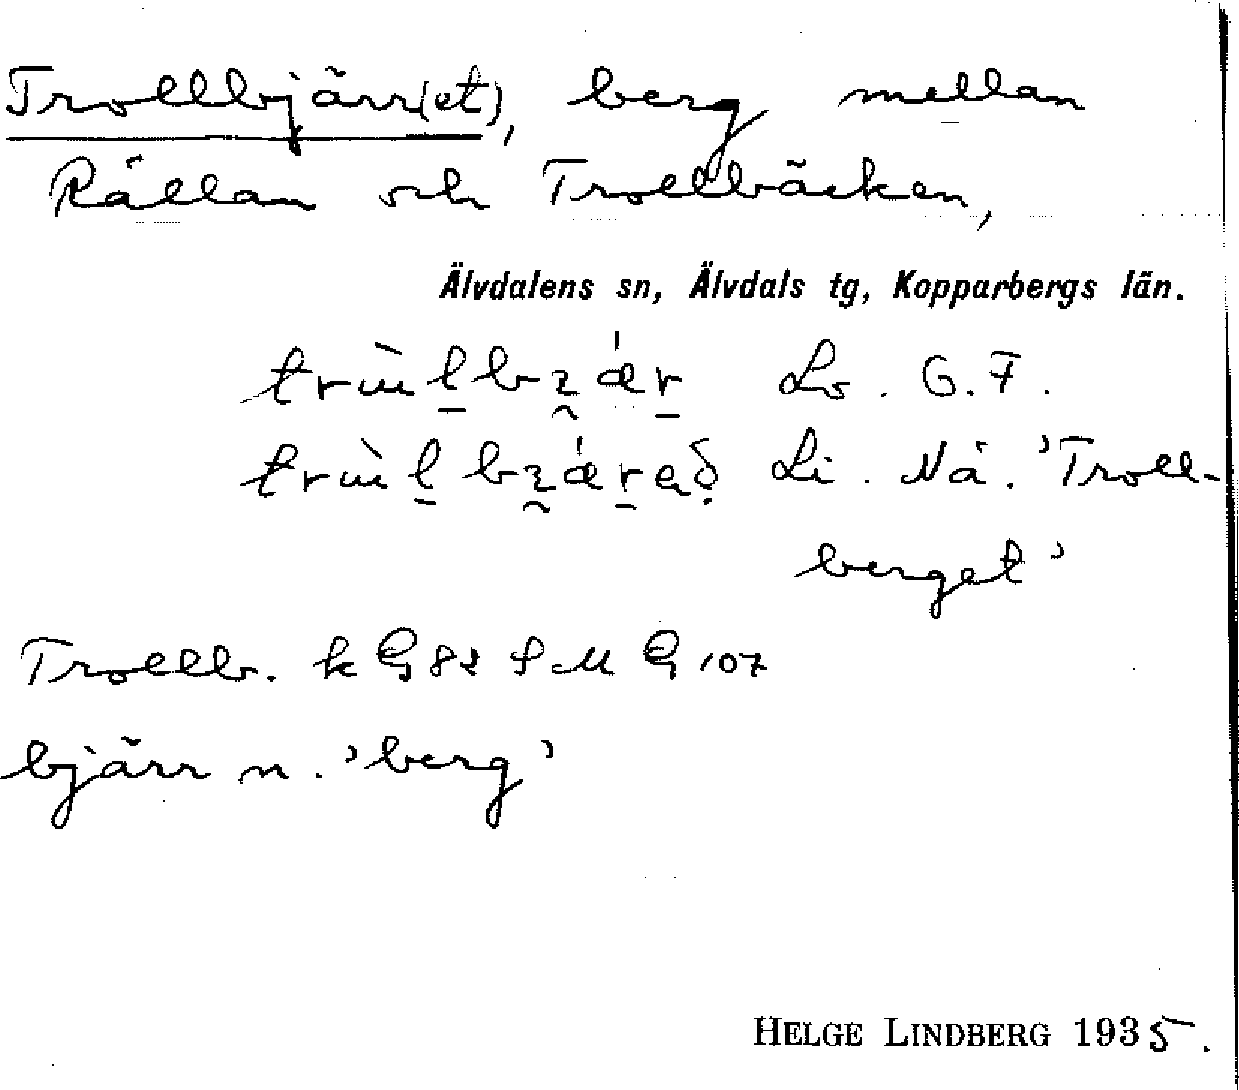 Trollbjärr(et), berg mellan
Rållan och Trollbäcken,
Älvdalens sn, Älvdals tg, Kopparbergs län.
Lo. G. F.
Li. Nå. 'Troll-
berget'
Trollb. k G 82 G 107
bjärr n. 'berg'
HELGE LINDBERG 1935.